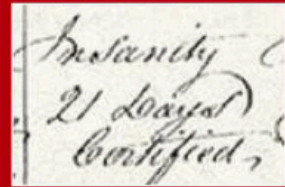 Insanity
21 Days
Certified,